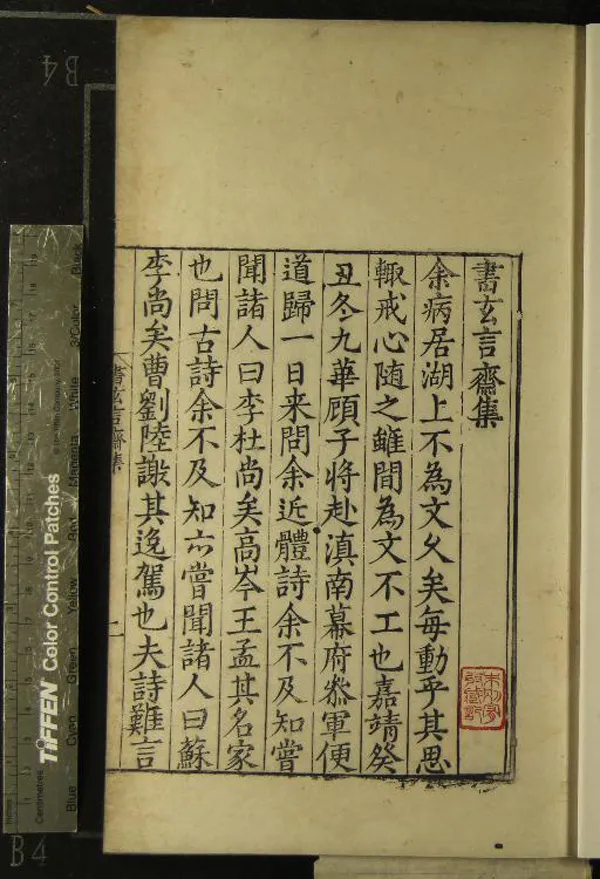 書玄言齋集
余病居湖上不為文乆矣每動乎其思
輙戒心随之雖間為文不工也嘉靖癸
丑冬九華顧子将赴滇南幕府叅軍便
道歸一日来問余近體詩余不及知嘗
聞諸人曰李杜尚矣高岑王孟其名家
也問古詩余不及知亦嘗聞諸人曰蘇
李尚矣曹劉陸謝其逸駕也夫詩難言
書玄言齋集
一
B4
B4
TIFFEN Color Control Patches
Centimetres
Inches
Blue
Cyan
Green
Yellow
Red
Magenta
White
3/Color
Black